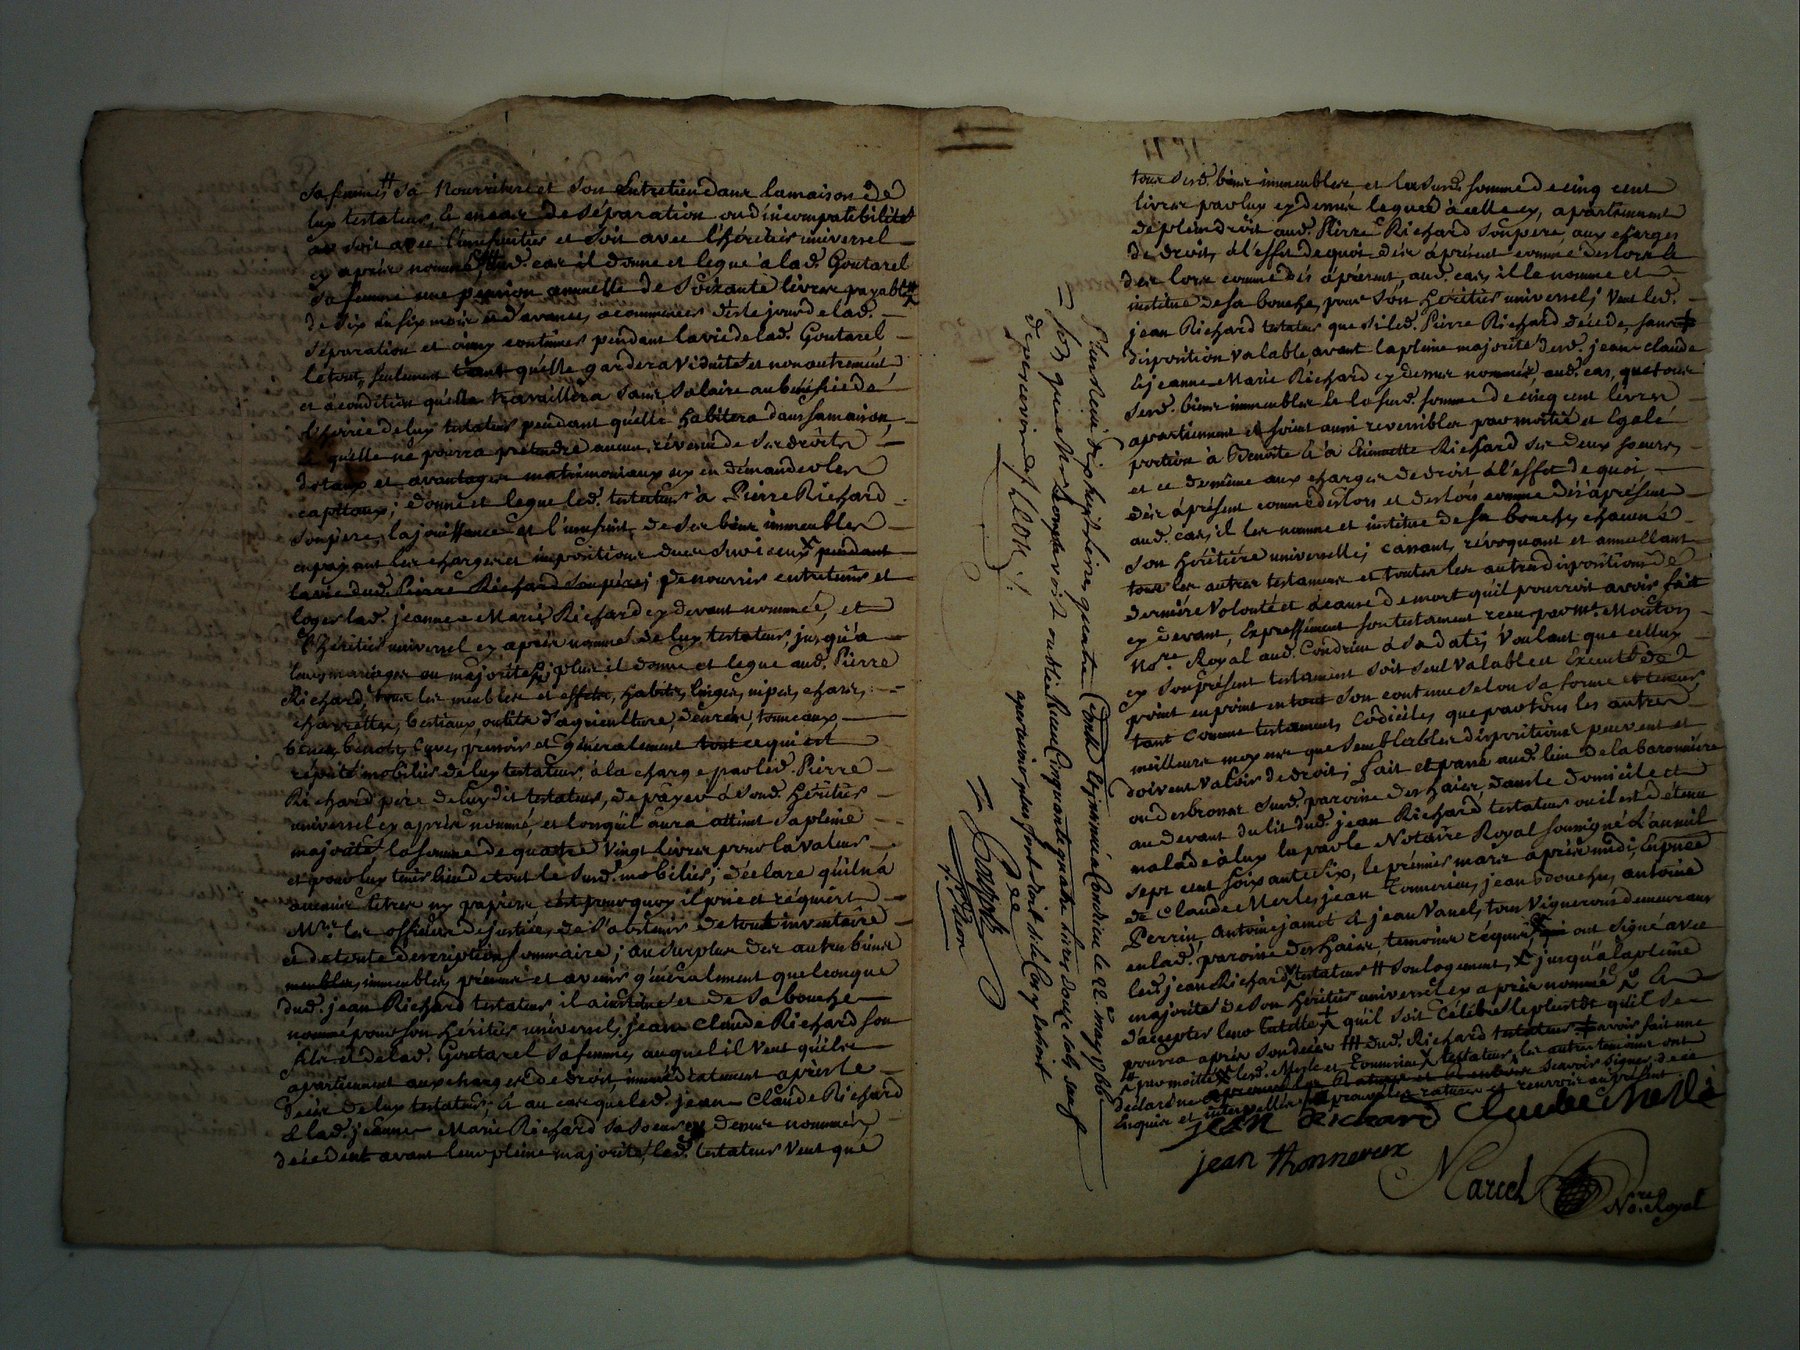 sa femme # sa Nourriture et son Entretien dans la maison de
luy testateur, & en cas de séparation ou d'incompatibilité
soit avec l'usufruitier et soit avec l'héritier universel
cy après nommé aud. cas il donne et legue à lad. Goutarel
sa femme une pension annuelle de soixante livres payable
de six en six mois et d'avance, a commencer dès le jour de lad.
séparation et ainy continuer pendant la vie de lad. Goutarel
le tout, seulement tant qu'elle gardera Viduité et non autrement
et a condition qu'elle travaillera sans salaire au bénéfice de
l'hoirie de luy testateur pendant qu'elle habitera dans sa maison,
& qu'elle ne pourra prétendre aucun révenu de ses droits
dotaux et avantages matrimoniaux ny en démander les
capitaux; donne et legue led. testateur à Pierre Richard
son pere, la jouissance et l'usufruit de ses biens immeubles
en payant les charges et impositions pendant
la vie dud. Pierre Richard son père; de nourrir entretenir et
loger lad. jeanne Marie Richard cy devant nommée, et
l'héritier universel cy après nommé de luy testateur, jusqu'a
leurs mariages ou majorités; plus il donne et legue aud. Pierre
Richard, tous les meubles et effets, habits, linges, nipes, chars,
charrettes, bestiaux, outils d'agriculture, denrées, tonneaux,
bennes, cuves, pressoir et généralement tout ce qui est
réputé mobilier de luy testateur, à la charge par led. Pierre
Richard père de luy dit testateur, de payer à sond. héritier
universel cy après nommé, et lorsqu'il aura atteint sa pleine
majorité, la somme de quatre vingt livres pour la valeur
et pour luy tenir lieu de tout le surd. mobilier; déclare qu'il n'a
aucuns titres ny papiers, c'est pourquoy il prie et réquiert
Mrs. les officiers de justice, de s'abstenir de tout inventaire
et de toute description sommaire; au surplus des autres biens
meubles, immeubles, présents et avenir généralement quelconque
dud. jean Richard testateur il a institué et de sa bouche
nommé pour son héritier universel, jean Claude Richard son
fils et de lad. Goutarel sa femme, auquel il veut qu'ils
apartiennent aux charges de droit, immédiatement après le
décès de luy testateur; & au cas que led. jean Claude Richard
& lad. jeanne Marie Richard sa soeur cy dessus nommés,
décedent avant leur pleine majorité, led. testateur veut que
tous sesd. biens immeubles et la surd. somme de cinq cent
livres par luy cy dessus leguée à celle cy, apartiennent
de plein droit aud. Pierre Richard son pere, aux charges
de droit, à l'effet de quoi dès à présent comme dès lors &
dès lors comme dès à présent, aud. cas, il le nomme et
institue de sa bouche, pour son héritier universel; Veut led.
jean Richard testateur que si led. Pierre Richard décede, sans
disposition valable, avant la pleine majorité desd. jean Claude
& jeanne Marie Richard cy dessus nommés, aud. cas, que tous
sesd. biens immeubles et la surd. somme de cinq cent livres
apartiennent et soient aussi reversibles par moitié et Egale
portion à Benoite & à Etiennette Richard ses deux soeurs,
et ce de même aux charges de droit à l'effet de quoi
dès à présent comme dès lors et dès lors comme dès à présent
aud. cas, il les nomme et institue de sa bouche, chacune
son héritière universelle; cassant, révoquant et annullant
tous les autres testaments et toutes les autres dispositions de
dernière volonté et à cause de mort qu'il pourroit avoir fait
cy devant, Expressément son testament reçu par Me. Mouton
Nore. Royal aud. Condrieu à sa date; Voulant que celluy
cy son présent testament soit seul valable et Executé de
point en point en tout son contenu selon sa forme et teneur
tant comme testament, Codicile, que par tous les autres
meilleurs moyens que semblables dispositions peuvent et
doivent valoir de droit; fait et passé aud. lieu de la baronniere
ou desbrosses surd. paroisse des haies, dans le domicile et
au devant du lit dud. jean Richard, testateur ou il est détenu
malade à luy lu par le Notaire Royal soussigné L'an mil
sept cent soixante six, le prémier mars après midi; en présence
de Claude Merle, jean Tonnerieux, jean bouchu, antoine
Perrin, Antoine jamet & jean Vanel, tous Vignerons demeurans
en lad. paroisse des haies, temoins réquis, qui ont signé avec
led. jean Richard testateur # son logement, jusqu'à la pleine
majorité de son héritier universel cy après nommé
d'accepter leur tutelle qu'il soit célébré le plustôt qu'il se
pourra après son décès dud. Richard testateur avoir fait une
par moitié led. Merle et Tonnerieux testateur, les autres temoins ont
déclaré ne sçavoir signer de ce
Enquis et interpellés
jean Richard Claude Merle
jean thonnereux
Marcel Nore. Royal
Controllé et insinué à Condrieu le 22e. may 1766